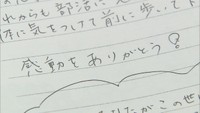 れからも部活に
体に気をつけて前に歩いて下
感動をありがとう!
がこの世